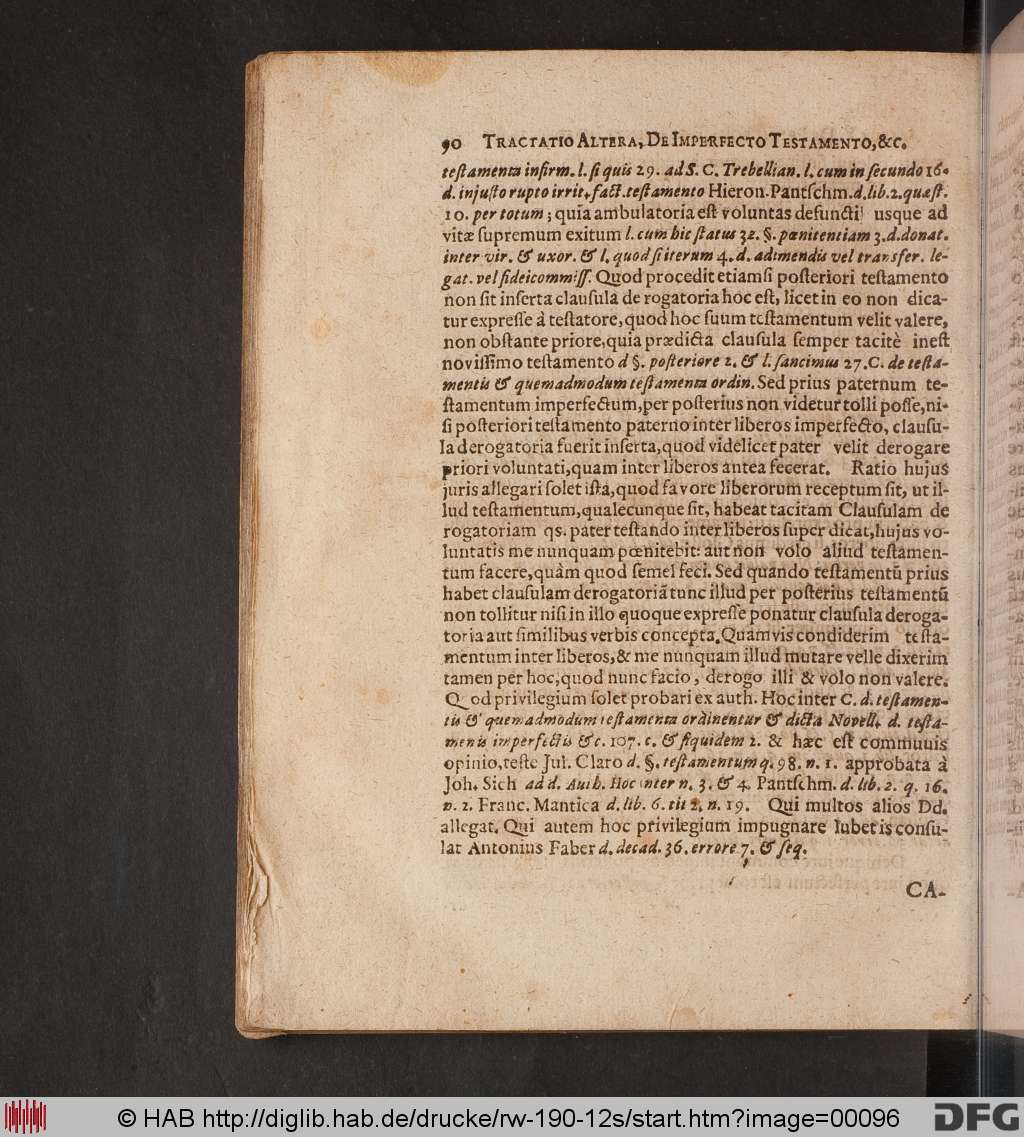 90 TRACTATIO ALTERA, DE IMPERFECTO TESTAMENTO, &c.
teſtamenta infirm. l. ſi quis 29. ad S. C. Trebellian. l. cum in ſecundo 16.
d. injuſto rupto irrit. fact. teſtamento Hieron. Pantſchm. d. lib. 2. quæſt.
10. per totum; quia ambulatoria eſt voluntas defuncti usque ad
vitæ ſupremum exitum l. cum hic ſtatus 32. §. pœnitentiam 3. d. donat.
inter vir. & uxor. & l. quod ſi iterum 4. d. adimendis vel transfer. le-
gat. vel fideicommiſſ. Quod procedit etiamſi poſteriori teſtamento
non ſit inſerta clauſula de rogatoria hoc eſt, licet in eo non dica-
tur expreſſe à teſtatore, quod hoc ſuum teſtamentum velit valere,
non obſtante priore, quia prædicta clauſula ſemper tacitè ineſt
noviſſimo teſtamento d §. poſteriore 2. & l. ſancimus 27. C. de teſta-
mentis & quemadmodum teſtamenta ordin. Sed prius paternum te-
ſtamentum imperfectum, per poſterius non videtur tolli poſſe, ni-
ſi poſteriori teſtamento paterno inter liberos imperfecto, clauſu-
la derogatoria fuerit inſerta, quod videlicet pater velit derogare
priori voluntati, quam inter liberos antea fecerat. Ratio hujus
juris allegari ſolet iſta, quod favore liberorum receptum ſit, ut il-
lud teſtamentum, qualecunque ſit, habeat tacitam Clauſulam de
rogatoriam qs. pater teſtando inter liberos ſuper dicat, hujus vo-
luntatis me nunquam pœnitebit: aut non volo aliud teſtamen-
tum facere, quàm quod ſemel feci. Sed quando teſtamentũ prius
habet clauſulam derogatoriã tunc illud per poſterius teſtamentũ
non tollitur niſi in illo quoque expreſſe ponatur clauſula deroga-
toria aut ſimilibus verbis concepta. Quamvis condiderim teſta-
mentum inter liberos, & me nunquam illud mutare velle dixerim
tamen per hoc, quod nunc facio, derogo illi & volo non valere.
Quod privilegium ſolet probari ex auth. Hoc inter C. d. teſtamen-
tis & quemadmodum teſtamenta ordinentur & dicta Novell. d. teſta-
mentis imperfectis &c. 107. c. & ſiquidem 2. & hæc eſt communis
opinio, teſte Jul. Claro d. §. teſtamentum q. 98. n. 1. approbata à
Joh. Sich ad d. Auth. Hoc inter n. 3. & 4. Pantſchm. d. lib. 2. q. 16.
n. 2. Franc. Mantica d. lib. 6. tit 2. n. 19. Qui multos alios Dd.
allegat. Qui autem hoc privilegium impugnare lubet is conſu-
lat Antonius Faber d. decad. 36. errore 7. & ſeq.
CA-
© HAB http://diglib.hab.de/drucke/rw-190-12s/start.htm?image=00096
DFG